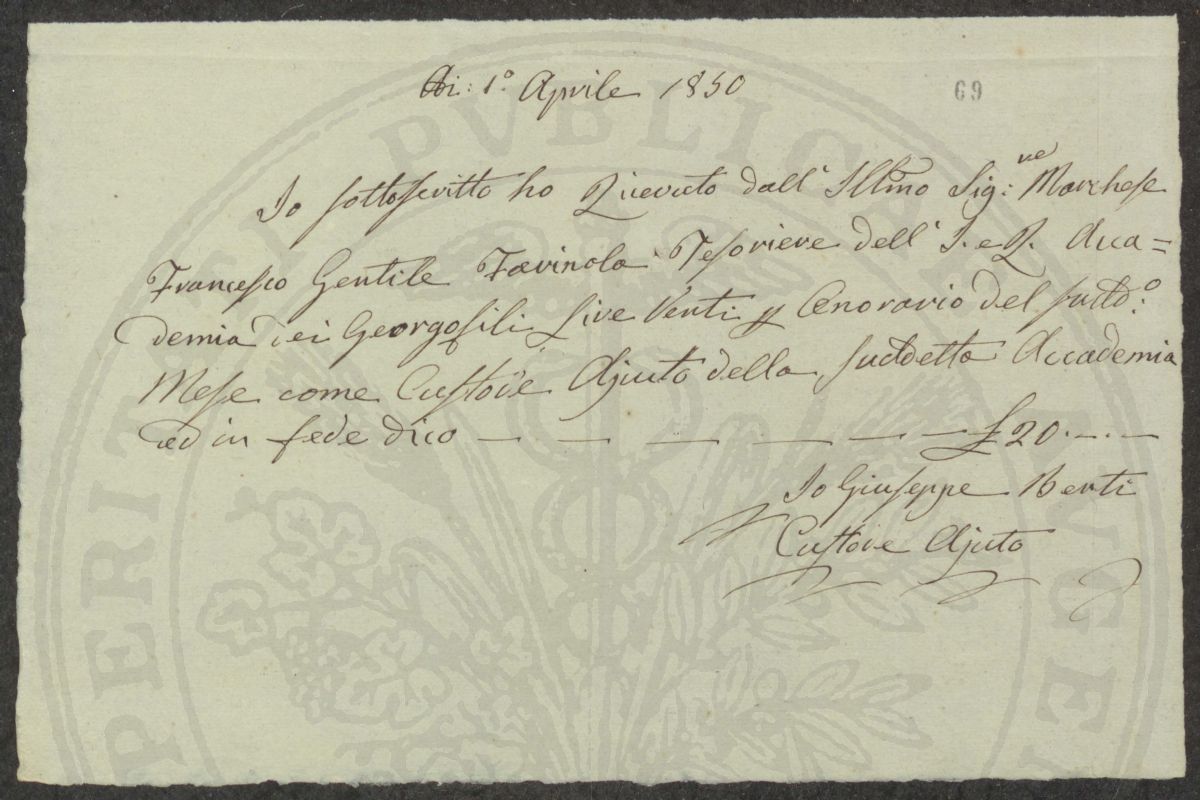 Adi: 1.º Aprile 1850
69
Io sottoscritto ho Ricevuto dall' Illmo Sig:re Marchese
Francesco Gentile Farinola Tesoriere dell' I. e R. Acca=
demia dei Georgofili Lire Venti p Onorario del sudd:º
Mese come Custode Ajuto della suddetta Accademia
ed in fede dico — — — — — — £ 20.-.-
Io Giuseppe Berti
Custode Ajuto
PERITATI PVBLICAE AVGE